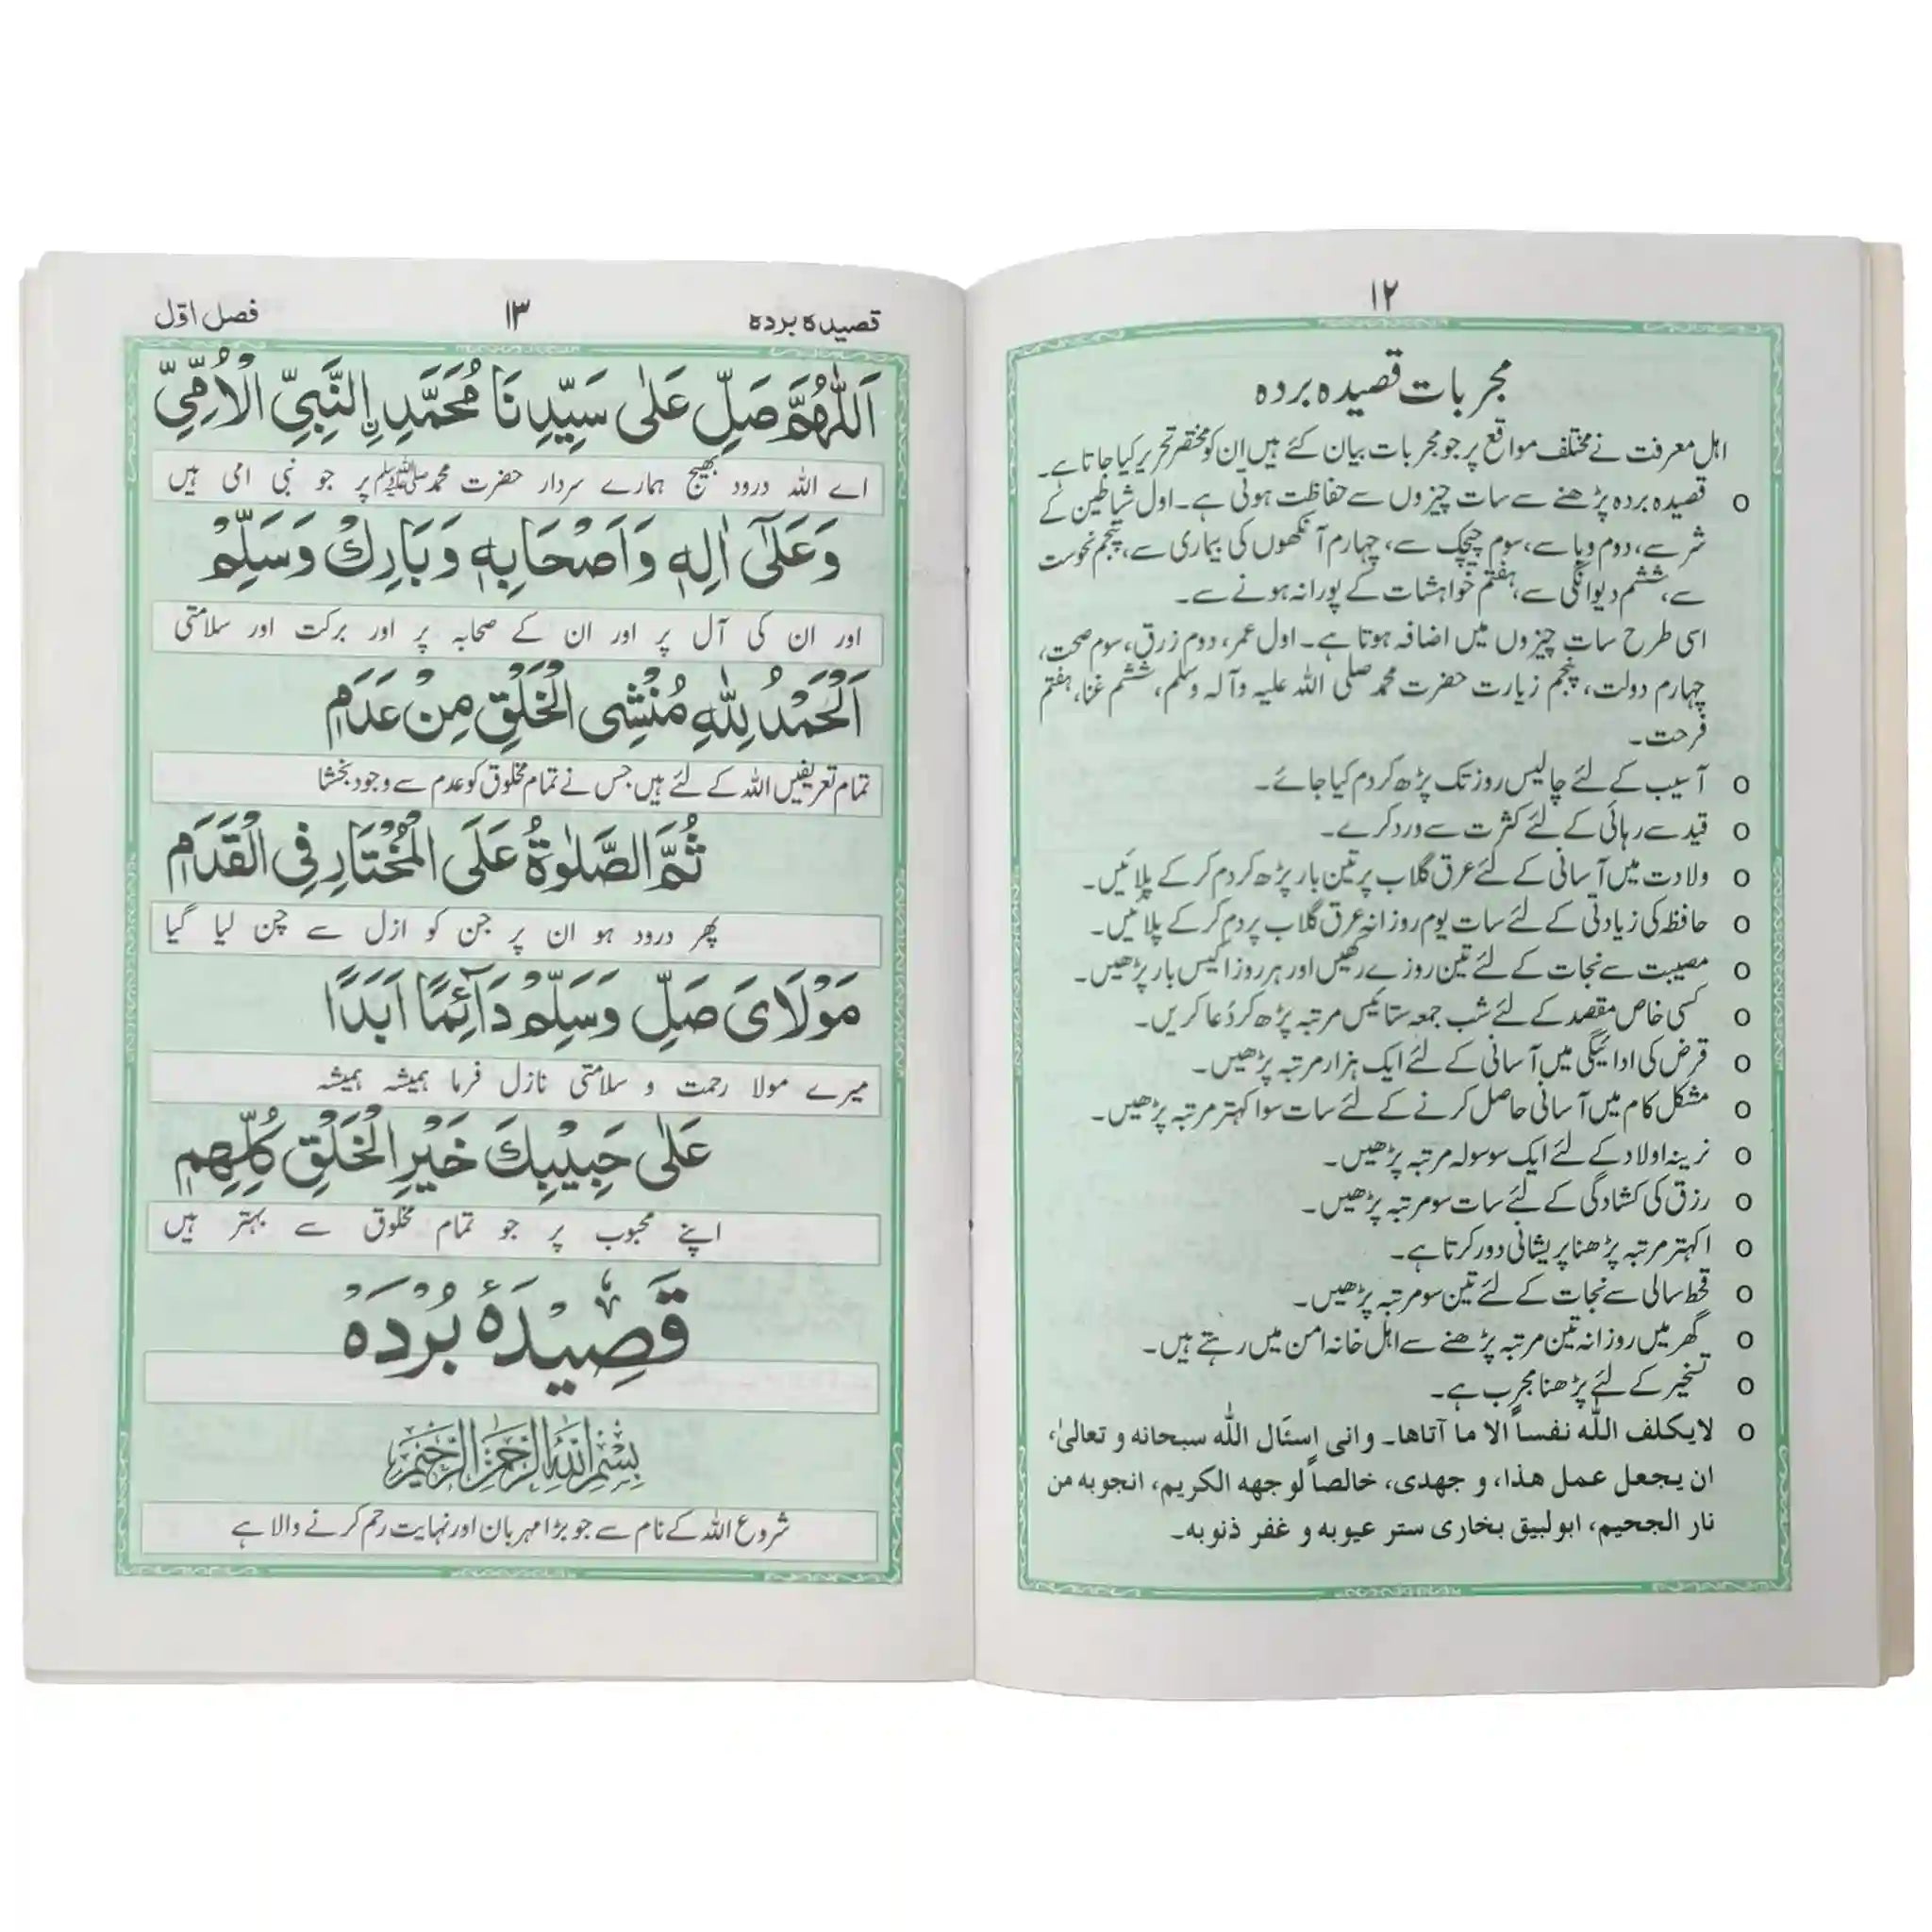 ۱۲
مجربات قصیدہ بردہ
اہل معرفت نے مختلف مواقع پر جو مجربات بیان کئے ہیں ان کو مختصر تحریر کیا جاتا ہے۔
o قصیدہ بردہ پڑھنے سے سات چیزوں سے حفاظت ہوتی ہے۔ اول شیاطین کے
شر سے، دوم وبا سے، سوم چیچک سے، چہارم آنکھوں کی بیماری سے، پنجم نحوست
سے، ششم دیوانگی سے، ہفتم خواہشات کے پورا نہ ہونے سے۔
اسی طرح سات چیزوں میں اضافہ ہوتا ہے۔ اول عمر، دوم زرق، سوم صحت،
چہارم دولت، پنجم زیارت حضرت محمد صلی اللہ علیہ وآلہ وسلم، ششم غنا، ہفتم
فرحت۔
o آسیب کے لئے چالیس روز تک پڑھ کر دم کیا جائے۔
o قید سے رہائی کے لئے کثرت سے ورد کرے۔
o ولادت میں آسانی کے لئے عرق گلاب پر تین بار پڑھ کر دم کر کے پلائیں۔
o حافظہ کی زیادتی کے لئے سات یوم روزانہ عرق گلاب پر دم کر کے پلائیں۔
o مصیبت سے نجات کے لئے تین روزے رکھیں اور ہر روز اکیس بار پڑھیں۔
o کسی خاص مقصد کے لئے شب جمعہ ستائیس مرتبہ پڑھ کر دُعا کریں۔
o قرض کی ادائیگی میں آسانی کے لئے ایک ہزار مرتبہ پڑھیں۔
o مشکل کام میں آسانی حاصل کرنے کے لئے سات سو اکہتر مرتبہ پڑھیں۔
o نرینہ اولاد کے لئے ایک سو سولہ مرتبہ پڑھیں۔
o رزق کی کشادگی کے لئے سات سو مرتبہ پڑھیں۔
o اکہتر مرتبہ پڑھنا پریشانی دور کرتا ہے۔
o قحط سالی سے نجات کے لئے تین سو مرتبہ پڑھیں۔
o گھر میں روزانہ تین مرتبہ پڑھنے سے اہل خانہ امن میں رہتے ہیں۔
o تسخیر کے لئے پڑھنا مجرب ہے۔
o لایکلف اللّٰہ نفساً الا ما آتاھا۔ وانی اسئال اللّٰہ سبحانه و تعالیٰ،
ان یجعل عمل ھذا، و جھدی، خالصاً لوجھه الکریم، انجوبه من
نار الجحیم، ابولبیق بخاری ستر عیوبه و غفر ذنوبه۔
قصیدہ بردہ ۱۳ فصل اوّل
اَللّٰهُمَّ صَلِّ عَلٰى سَيِّدِنَا مُحَمَّدِ ِۨالنَّبِيِّ الْاُمِّيِّ
اے اللہ درود بھیج ہمارے سردار حضرت محمدﷺ پر جو نبی امی ہیں
وَعَلٰٓى اٰلِهٖ وَاَصْحَابِهٖ وَبَارِكْ وَسَلِّمْ
اور ان کی آل پر اور ان کے صحابہ پر اور برکت اور سلامتی
اَلْحَمْدُ لِلّٰهِ مُنْشِى الْخَلْقِ مِنْ عَدَمٖ
تمام تعریفیں اللہ کے لئے ہیں جس نے تمام مخلوق کو عدم سے وجود بخشا
ثُمَّ الصَّلٰوةُ عَلَى الْمُخْتَارِ فِي الْقَدَمٖ
پھر درود ہو ان پر جن کو ازل سے چن لیا گیا
مَوْلَاىَ صَلِّ وَسَلِّمْ دَآئِمًا اَبَدًا
میرے مولا رحمت و سلامتی نازل فرما ہمیشہ ہمیشہ
عَلٰى حَبِيْبِكَ خَيْرِ الْخَلْقِ كُلِّهِمٖ
اپنے محبوب پر جو تمام مخلوق سے بہتر ہیں
قَصِيْدَۂ بُرْدَہْ
بِسْمِ اللّٰهِ الرَّحْمٰنِ الرَّحِيْمِ
شروع اللہ کے نام سے جو بڑا مہربان اور نہایت رحم کرنے والا ہے